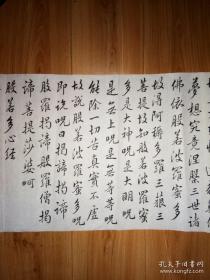 夢想究竟涅盤三世諸
佛依般若波羅蜜多
故得阿耨多羅三藐三
菩提故知般若波羅蜜
多是大神呪是大明呪
是無上呪是無等等呪
能除一切苦真實不虛
故説般若波羅蜜多呪
即説呪曰揭諦揭諦
般羅揭諦般羅僧揭
諦菩提莎婆呵
般若多心經
孔夫子旧书网